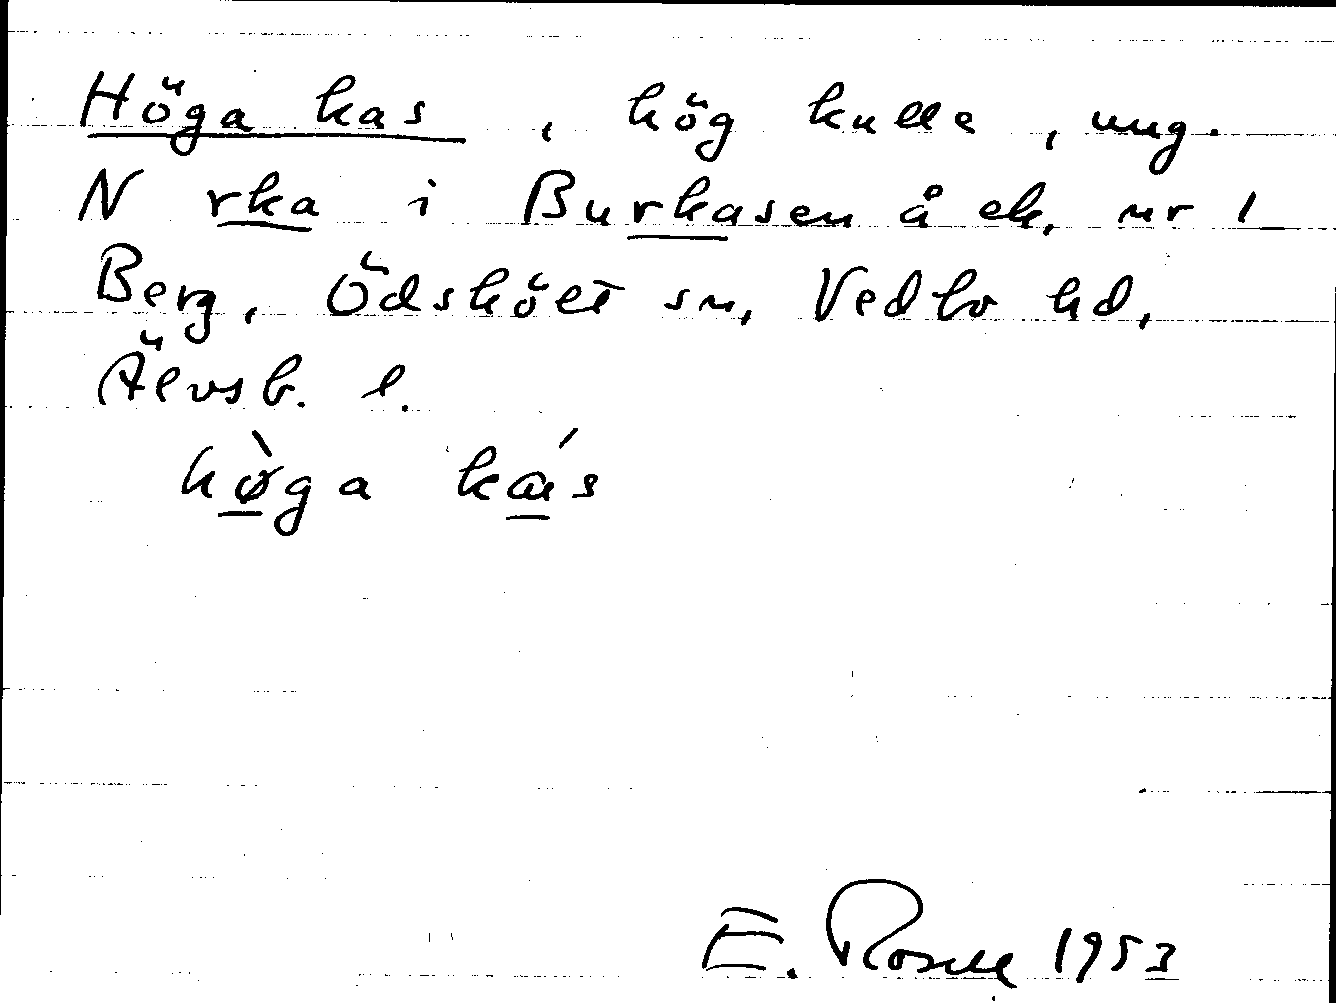 Höga kas, hög kulle, ung.
N rka i Burkasen å ek. nr 1
Berg, Ödskölt sn, Vedbo hd,
Älvsb. l.
hø̀ga kás
E. Rosell 1953